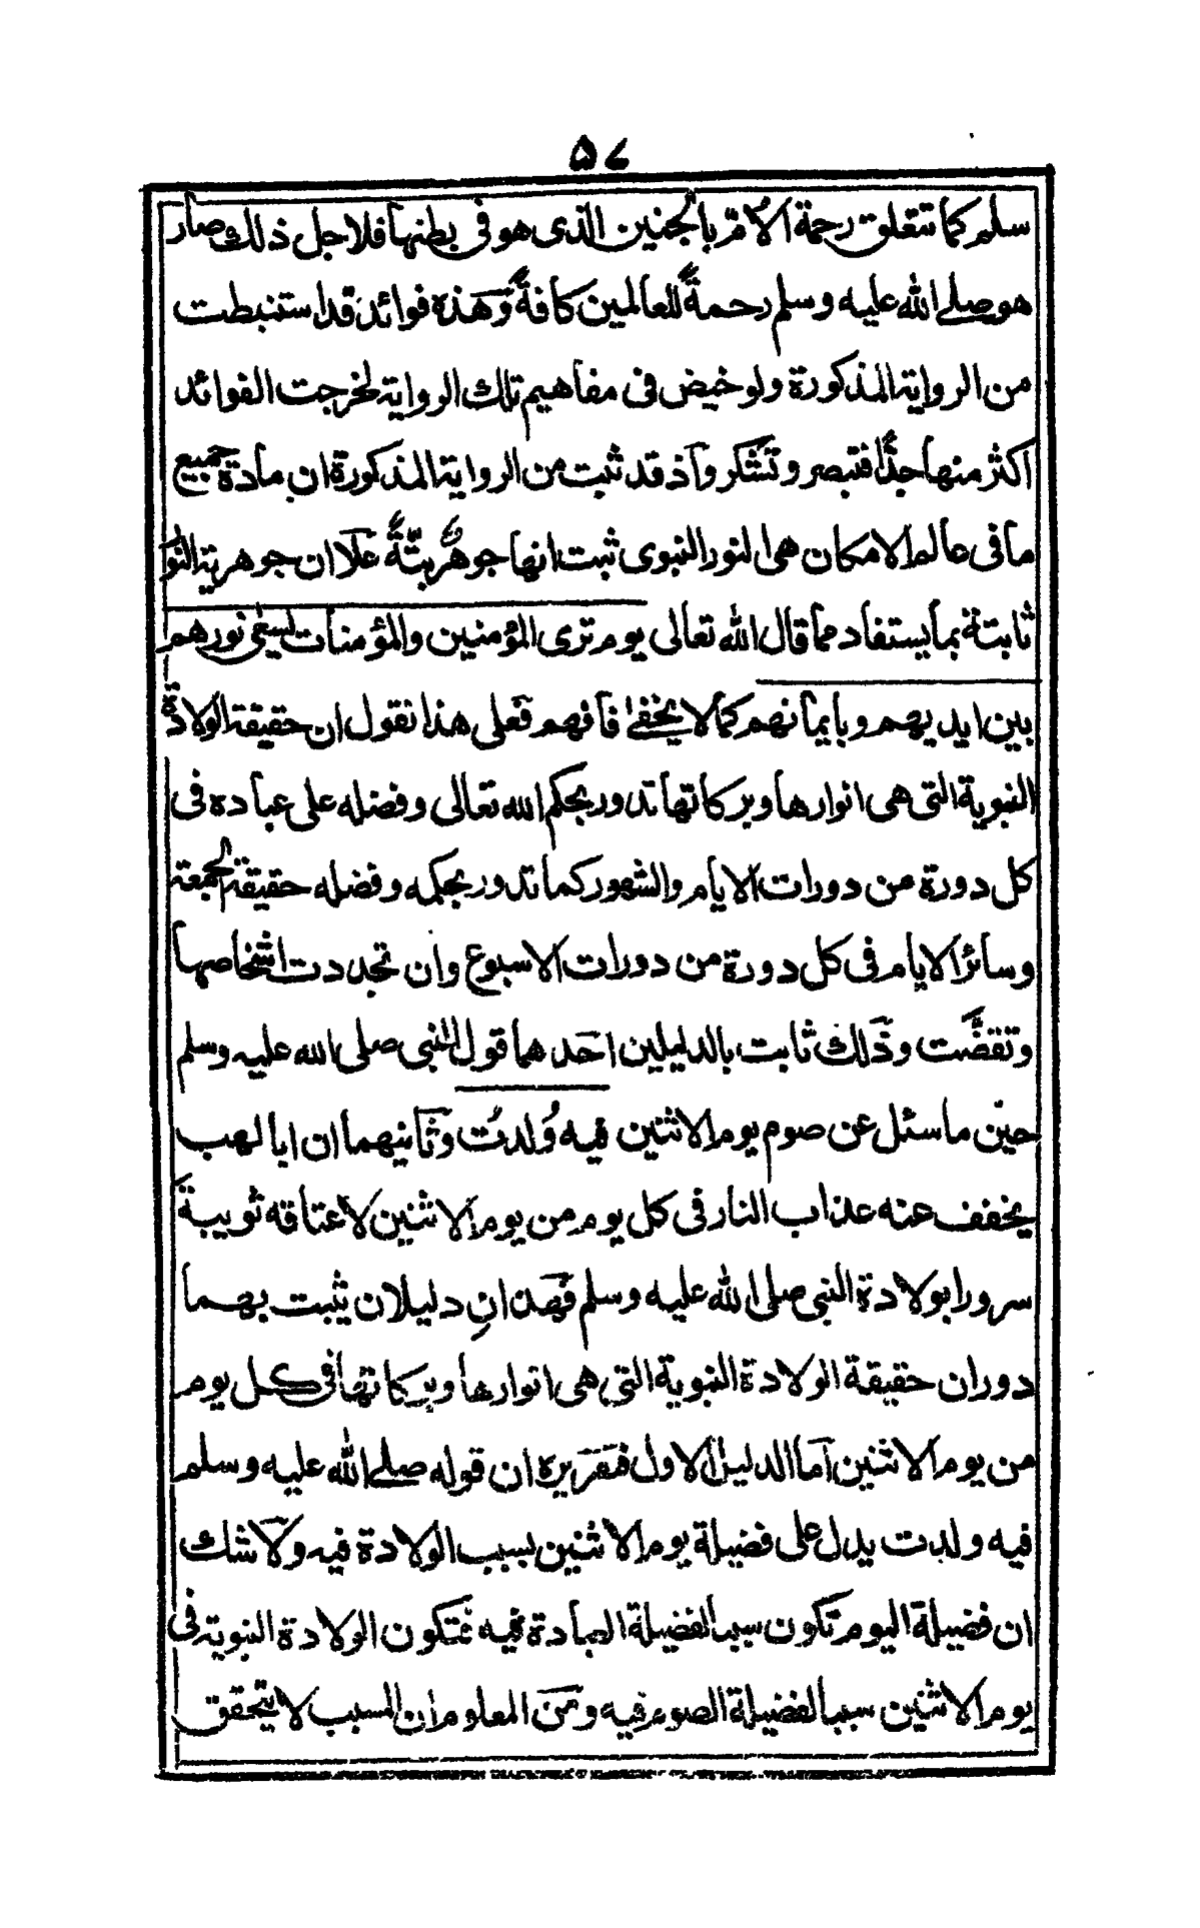 ۵۷
سلم كما تتعلق رحمة الأمّ بالجنين الذى هو فى بطنها فلاجل ذلك صار
هو صلے الله عليه وسلم رحمةً للعالمين كافةً وهذه فوائد قد استنبطت
من الرواية المذكورة ولو خيض فى مفاهيم تلك الرواية لخرجت الفوائد
اكثر منها جدًّا فتبصر وتشكر واذ قد ثبت من الرواية المذكورة ان مادة جميع
ما فى عالم الامكان هى النور النبوى ثبت انها جوهرُّيتّةً علا ان جوهرية النور
ثابتة بما يستفاد مما قال الله تعالى يوم ترى المؤمنين والمؤمنات يسعى نورهم
بين ايديهم وبايمانهم كما لا يخفى فافهم فعلى هذا نقول ان حقيقة الولادة
النبوية التى هى انوارها وبركاتها تدور بحكم الله تعالى وفضله على عباده فى
كل دورة من دورات الايام والشهور كما تدور بحكمه وفضله حقيقة الجمعة
وسائر الايام فى كل دورة من دورات الاسبوع وان تجددت اشخاصها
وتقضَّت وذلك ثابت بالدليلين احدهما قول النبى صلى الله عليه وسلم
حين ما سئل عن صوم يوم الاثنين فيه وُلدتُ وثانيهما ان ابا لهب
يخفف عنه عذاب النار فى كل يوم من يوم الاثنين لاعتاقه ثويبةَ
سرورا بولادة النبى صلى الله عليه وسلم فهذانِ دليلان يثبت بهما
دوران حقيقة الولادة النبوية التى هى انوارها وبركاتها فى كل يوم
من يوم الاثنين اما الدليل الاول فتقريره ان قوله صلے الله عليه وسلم
فيه ولدت يدل على فضيلة يوم الاثنين بسبب الولادة فيه ولا شك
ان فضيلة اليوم تكون سببا لفضيلة العبادة فيه فتكون الولادة النبوية فى
يوم الاثنين سببا لفضيلة الصوم فيه ومن المعلوم ان المسبب لا يتحقق